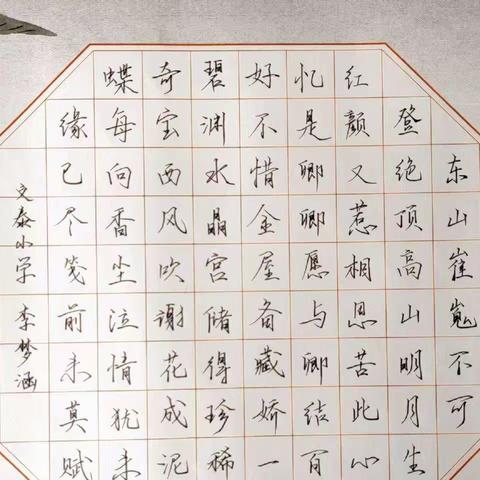 东山崔嵬不可
登绝顶高山明月生
红颜又惹相思苦此心
忆是卿卿愿与卿结百
好不惜金屋备藏娇一
碧渊水晶宫储得珍稀
奇宝西风吹谢花成泥
蝶每向香尘泣情犹未
缘已尽笺前未莫赋
文泰小学 李梦涵